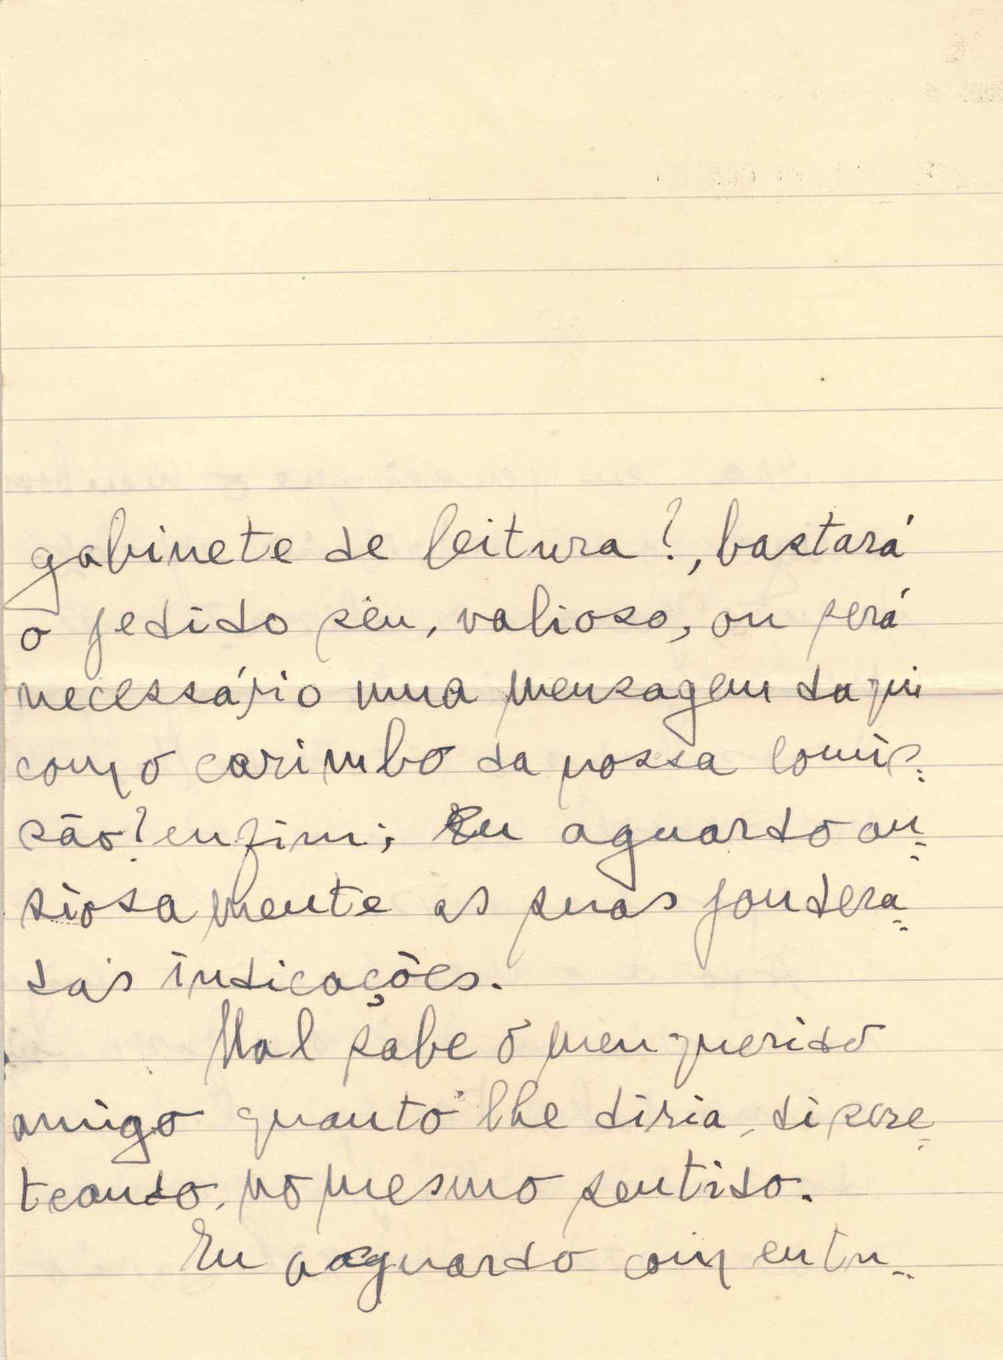 gabinete de leitura?, bastará
o pedido seu, valioso, ou será
necessário uma mensagem daqui
com o carimbo da nossa comis=
são? enfim; Eu aguardo an=
siosamente as suas pondera=
das indicações.
Mal sabe o meu querido
amigo quanto lhe diria, discre=
teando, no mesmo sentido.
Eu aguardo com entu=